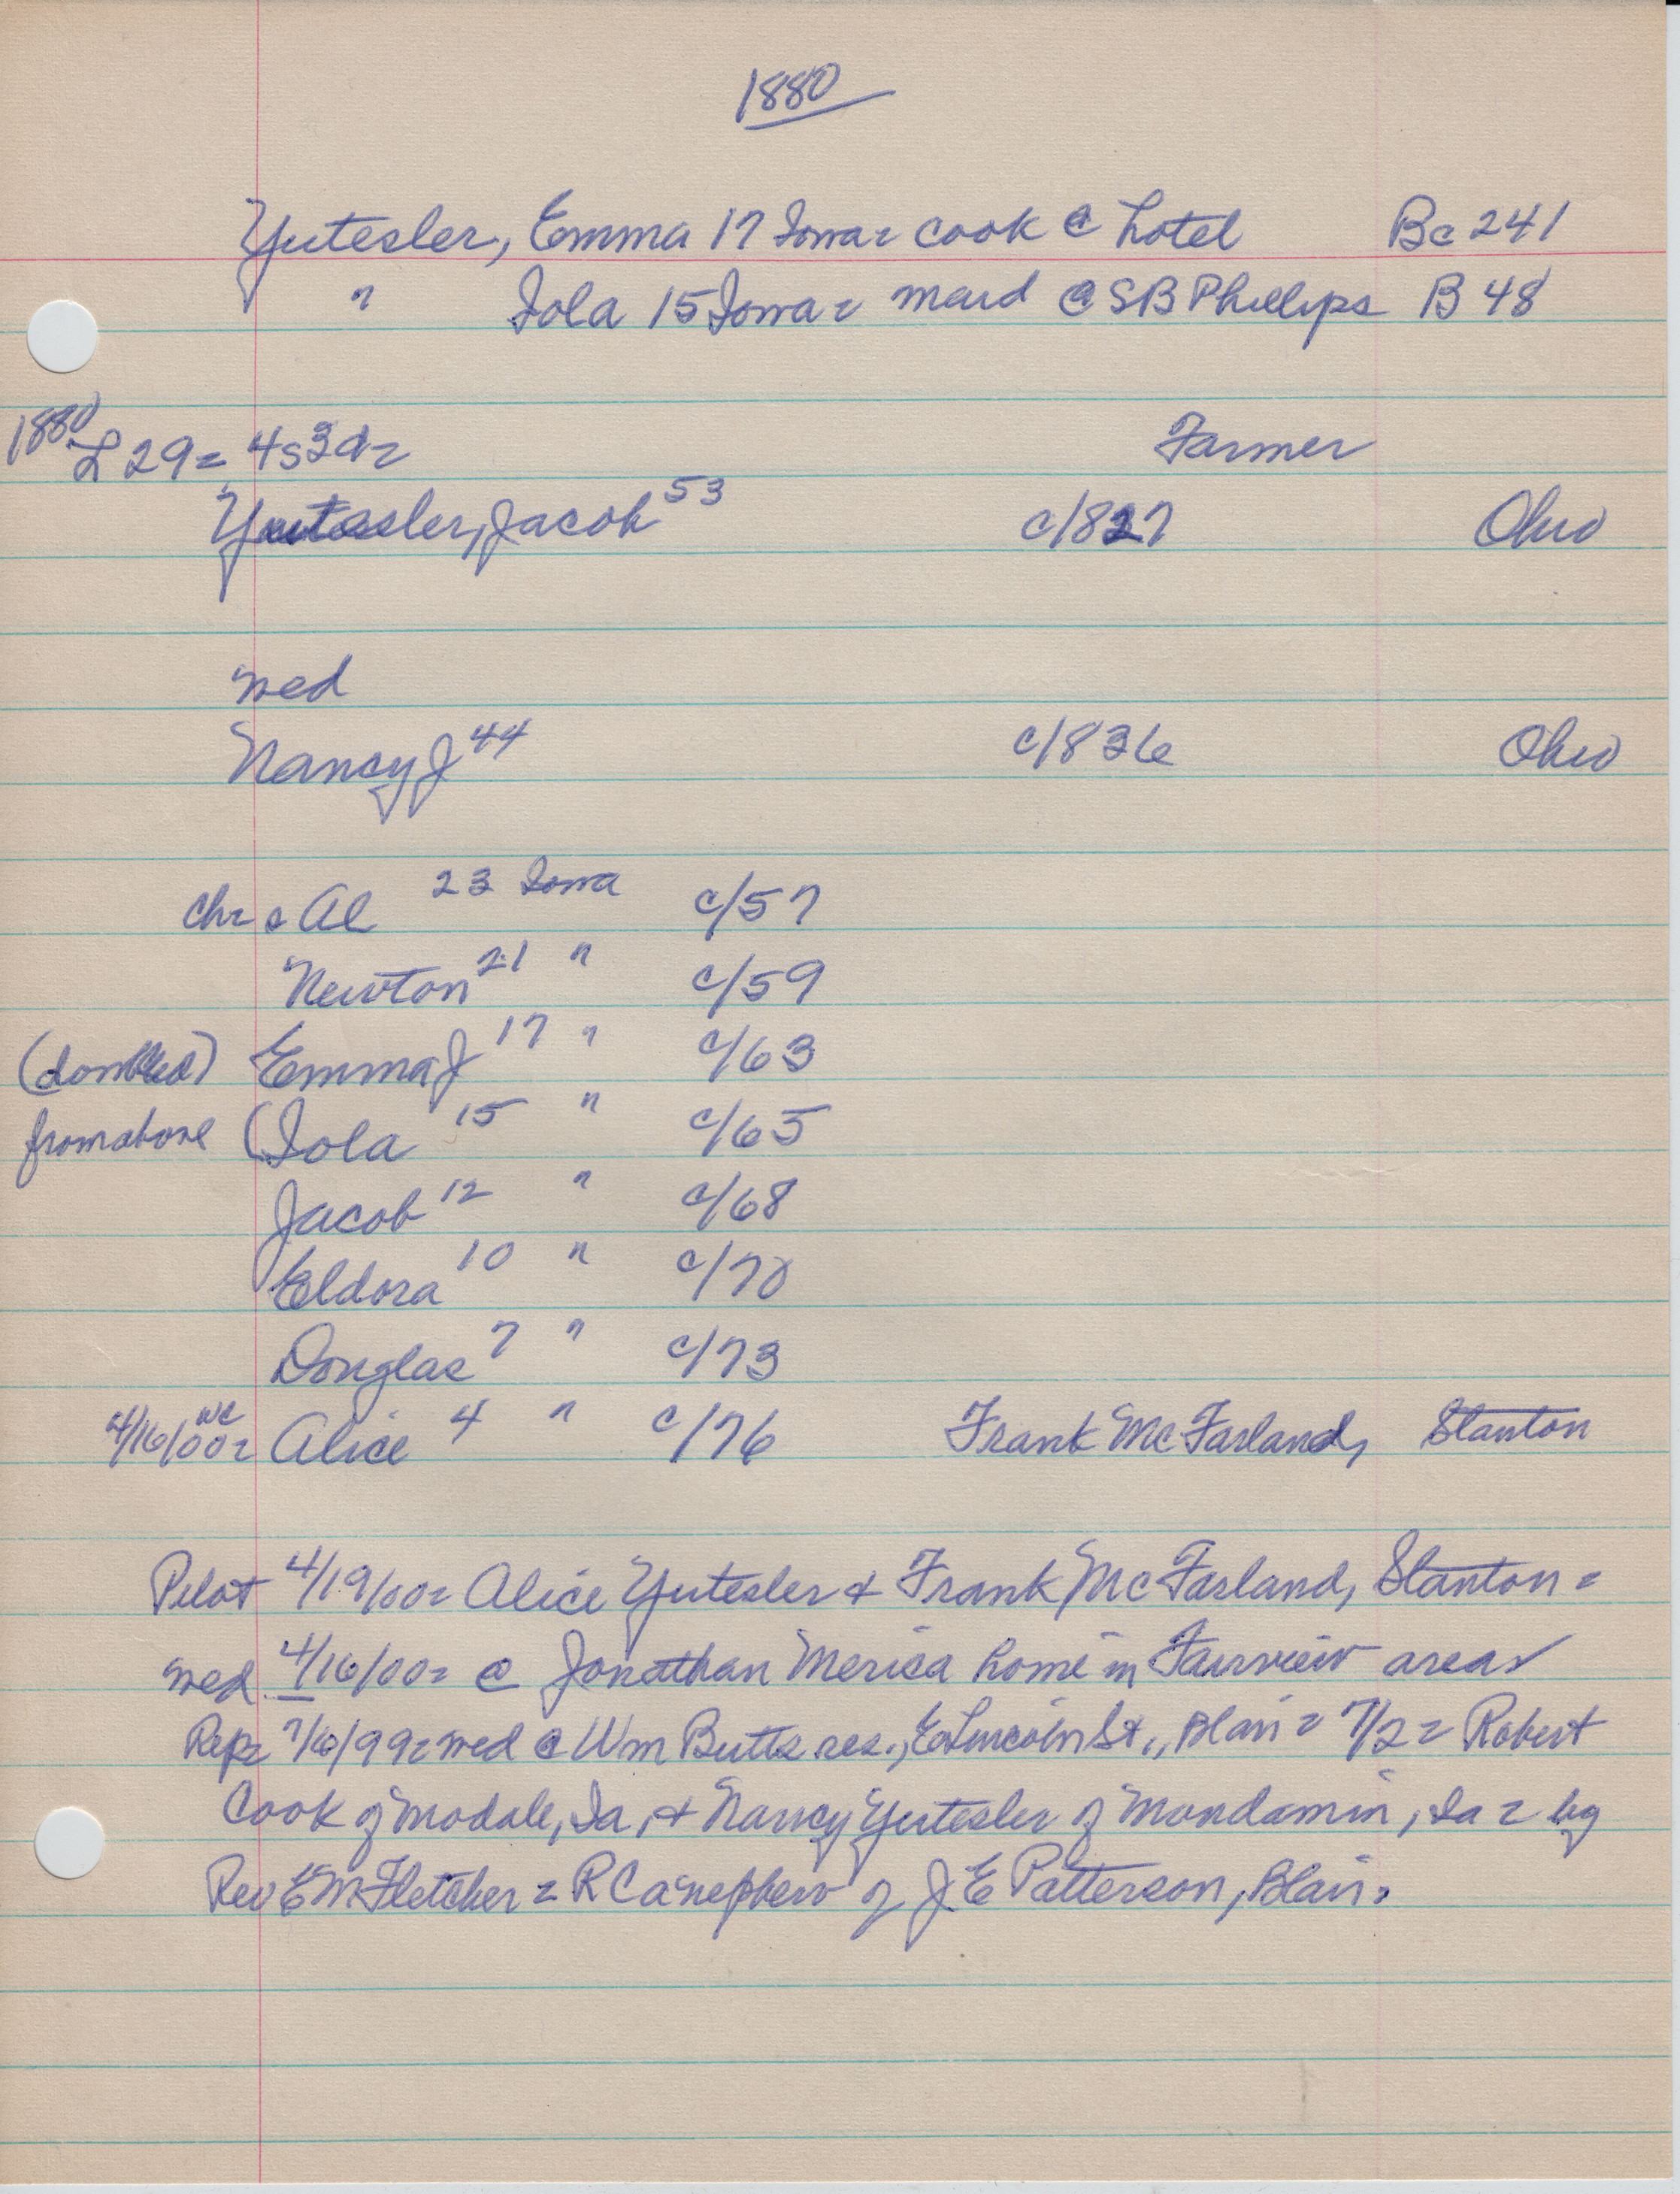 1880
Yutesler, Emma 17 Iowa = cook @ hotel Bc 241
" Iola 15 Iowa = maid @ SB Phillips B 48
1880 L 29 = 4s3d = Farmer
Yutesler, Jacob 53 c/1827 Ohio
wed
Nancy J 44 c/1836 Ohio
chr = Al 23 Iowa c/57
Newton 21 " c/59
(doubled) Emma J 17 " c/63
from above (Iola 15 " c/65
Jacob 12 " c/68
Eldora 10 " c/70
Douglas 7 " c/73
4/16/00 = wc Alice 4 " c/76 Frank McFarland, Stanton
Pilot 4/19/00 = Alice Yutesler & Frank McFarland, Stanton =
wed. 4/16/00 = @ Jonathan Merica home in Fairview area
Rep = 7/6/99 = wed @ Wm Butts res., E Lincoln St., Blair = 7/2 = Robert
Cook of Modale, Ia, & Nancy Yutesler of Mondamin, Ia = by
Rev EM Fletcher = RC a nephew of J E Patterson, Blair.